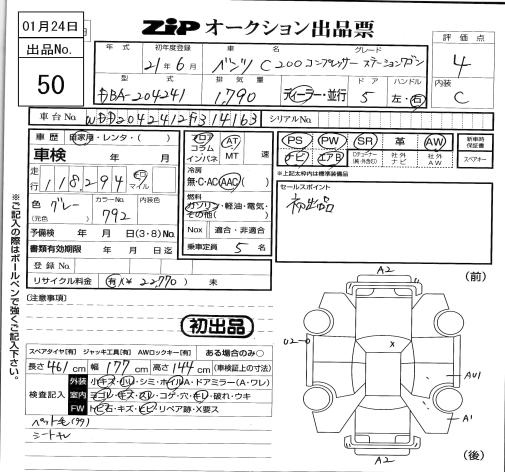 01月24日
出品No.
50
ZIP オークション出品票
評価点
4
内装
C
年式 初年度登録 車名 グレード
21年6月 ベンツ C200コンプレッサー ステーションワゴン
型式 排気量 ドア ハンドル
DBA-204241 1,790 ディーラー・並行 5 左・右
車台No. WDD2042412F314163 シリアルNo.
車歴 自家用・レンタ・( )
フロア コラム インパネ AT MT 速
PS PW SR 革 AW
ナビ エアB
社外ナビ 社外AW
新車時保証書
スペアキー
※上記太枠内は標準装備品
車検 年 月
走行 118,294 km マイル
冷房
無・C・AC・AAC
セールスポイント
初出品
色 グレー カラーNo. 792 内装色
(元色)
燃料
ガソリン・軽油・電気・その他( )
予備検 年 月 日(3・8)No.
Nox 適合・非適合
書類有効期限 年 月 日迄
乗車定員 5 名
登録No.
リサイクル料金 有(¥22,770) 未
[注意事項]
初出品
※ご記入の際はボールペンで強くご記入下さい。
スペアタイヤ[有] ジャッキ工具[有] AWロックキー[有] ある場合のみ○
長さ 461 cm 幅 177 cm 高さ 144 cm (車検証上の寸法)
検査記入
外装 小キズ・小凹・シミ・ホイルA・ドアミラー(A・ワレ)
室内 ヨゴレ・キズ・スレ・コゲ・穴・キレ・破れ・ウキ
FW トビ石・キズ・ヒビ・リペア跡・X要ス
ペット毛(??)
シートキレ
(前)
A2
X
AU1
A1
A2
(後)